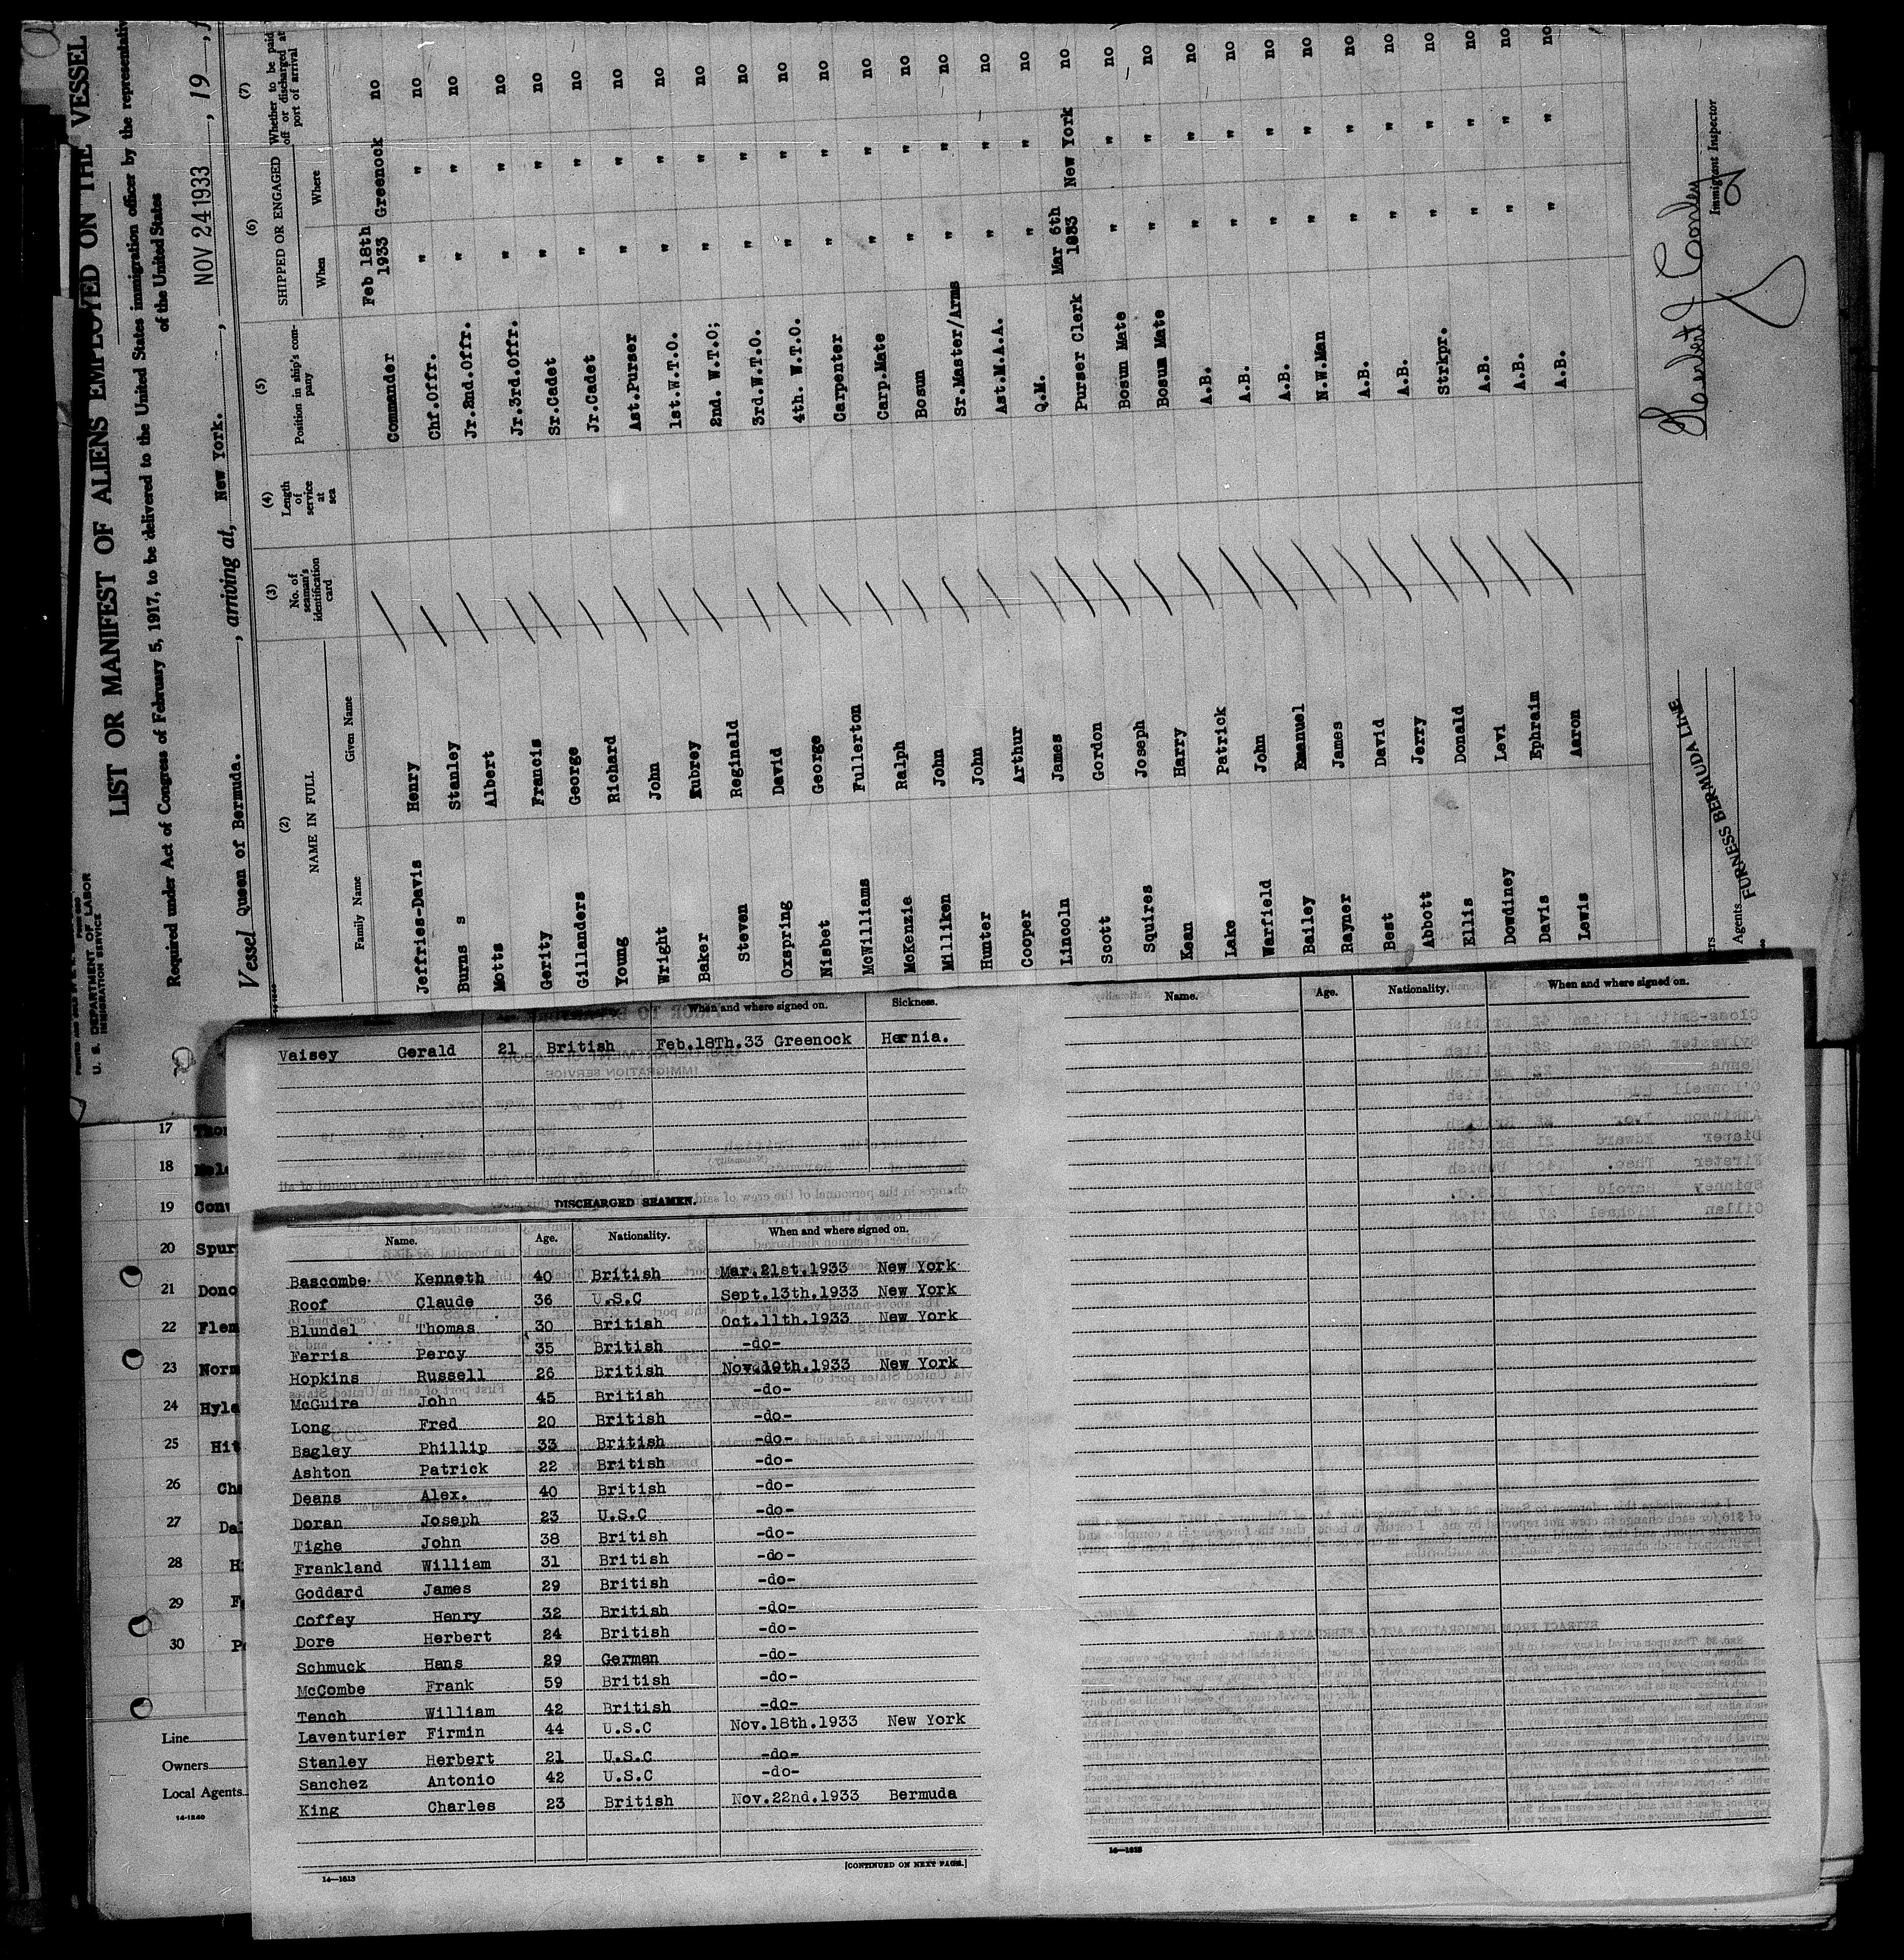 LIST OR MANIFEST OF ALIENS EMPLOYED ON THE VESSEL
U. S. DEPARTMENT OF LABOR
IMMIGRATION SERVICE
Required under Act of Congress of February 5, 1917, to be delivered to the United States immigration officer by the representativ
of the United States
Vessel Queen of Bermuda. , arriving at, New York. , NOV 24 1933 , 19
(2) (3) (4) (5) (6) (7)
NAME IN FULL No. of seaman's identification card Length of service at sea Position in ship's company SHIPPED OR ENGAGED Whether to be paid off or discharged at port of arrival
Family Name Given Name When Where
Jeffries-Davis Henry Commander Feb 18th 1933 Greenock no
Burns s Stanley Chf.Offr. " " no
Motts Albert Jr.2nd.Offr. " " no
Gerity Francis Jr.3rd.Offr. " " no
Gillanders George Sr.Cadet " " no
Young Richard Jr.Cadet " " no
Wright John Ast.Purser " " no
Baker Aubrey 1st.W.T.O. " " no
Steven Reginald 2nd. W.T.O; " " no
Oxspring David 3rd.W.T.O. " " no
Nisbet George 4th. W.T.O. " " no
McWilliams Fullerton Carpenter " " no
McKenzie Ralph Carp.Mate " " no
Milliken John Bosun " " no
Hunter John Sr.Master/Arms " " no
Cooper Arthur Ast.M.A.A. " " no
Lincoln James Q.M. " " no
Scott Gordon Purser Clerk Mar 6th 1933 New York no
Squires Joseph Bosun Mate " " no
Kean Harry Bosun Mate " " no
Lake Patrick A.B. " " no
Warfield John A.B. " " no
Bailey Emanuel A.B. " " no
Rayner James N.W.Man " " no
Best David A.B. " " no
Abbott Jerry A.B. " " no
Ellis Donald Strkpr. " " no
Dowdiney Levi A.B. " " no
Davis Ephraim A.B. " " no
Lewis Aaron A.B. " " no
Agents FURNESS BERMUDA LINE
Herbert J Conley
Immigrant Inspector
When and where signed on. Sickness.
Vaisey Gerald 21 British Feb.18Th.33 Greenock Hernia.
DISCHARGED SEAMEN.
Name. Age. Nationality. When and where signed on.
Bascombe Kenneth 40 British Mar.21st.1933 New York
Roof Claude 36 U.S.C Sept.13th.1933 New York
Blundel Thomas 30 British Oct.11th.1933 New York
Ferris Percy 35 British -do-
Hopkins Russell 26 British Nov.10th.1933 New York
McGuire John 45 British -do-
Long Fred 20 British -do-
Bagley Phillip 33 British -do-
Ashton Patrick 22 British -do-
Deans Alex. 40 British -do-
Doran Joseph 23 U.S.C -do-
Tighe John 38 British -do-
Frankland William 31 British -do-
Goddard James 29 British -do-
Coffey Henry 32 British -do-
Dore Herbert 24 British -do-
Schmuck Hans 29 German -do-
McCombe Frank 59 British -do-
Tench William 42 British -do-
Laventurier Firmin 44 U.S.C Nov.18th.1933 New York
Stanley Herbert 21 U.S.C -do-
Sanchez Antonio 42 U.S.C -do-
King Charles 23 British Nov.22nd.1933 Bermuda
[CONTINUED ON NEXT PAGE.]
14—1513
Name. Age. Nationality. When and where signed on.
14—1513
17
18
19
20 Spur
21 Dono
22 Flem
23 Norm
24 Hyla
25 Hit
26
27
28
29
30
Line
Owners
Local Agents
14-1240